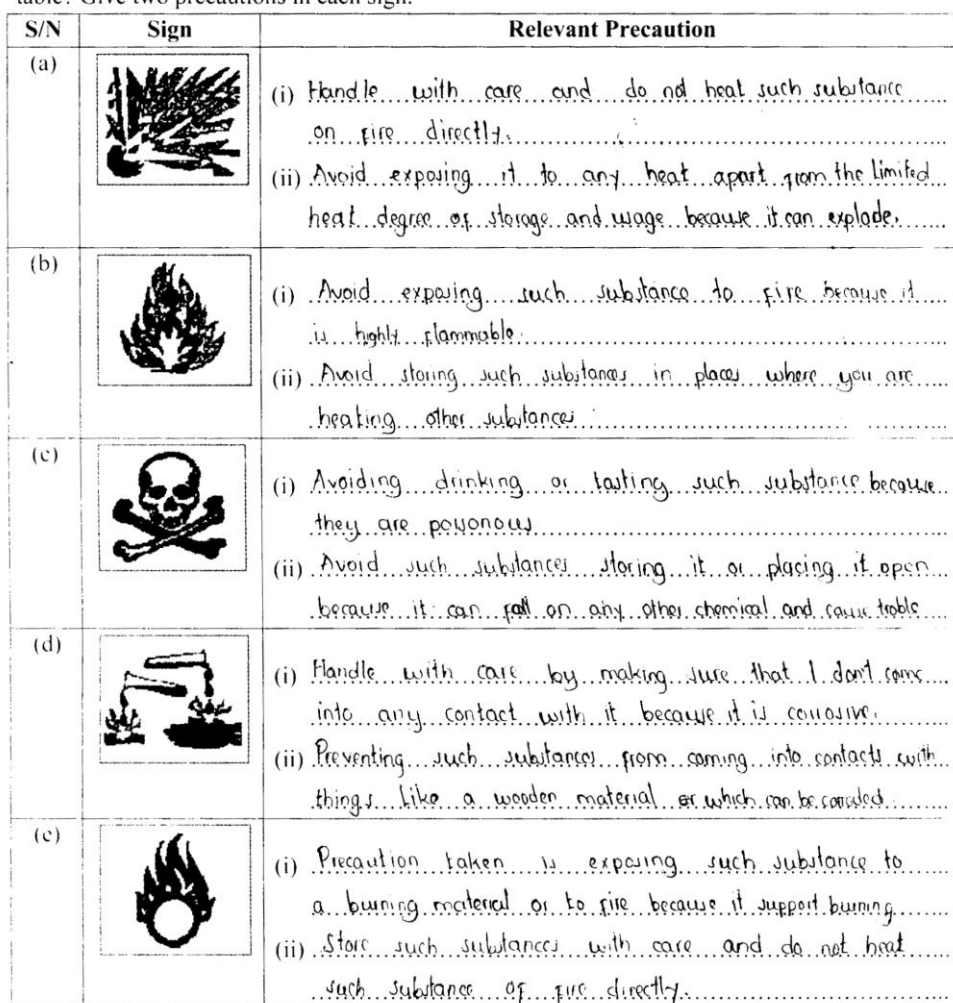 table? Give two precautions in each sign.
S/N Sign Relevant Precaution
(a)
(i) Handle with care and do not heat such substance
on fire directly.
(ii) Avoid exposing it to any heat apart from the Limited
heat degree of storage and usage because it can explode.
(b)
(i) Avoid exposing such substance to fire because it
is highly flammable.
(ii) Avoid storing such substances in places where you are
heating other substances
(c)
(i) Avoiding drinking or tasting such substance because
they are poisonous
(ii) Avoid such substances storing it or placing it open
because it can fall on any other chemical and cause troble
(d)
(i) Handle with care by making sure that I don't come
into any contact with it because it is corrosive.
(ii) Preventing such substances from coming into contacts with
things Like a wooden material or which can be corroded
(e)
(i) Precaution taken is exposing such substance to
a burning material or to fire because it support burning
(ii) Store such substances with care and do not heat
such substance of fire directly.